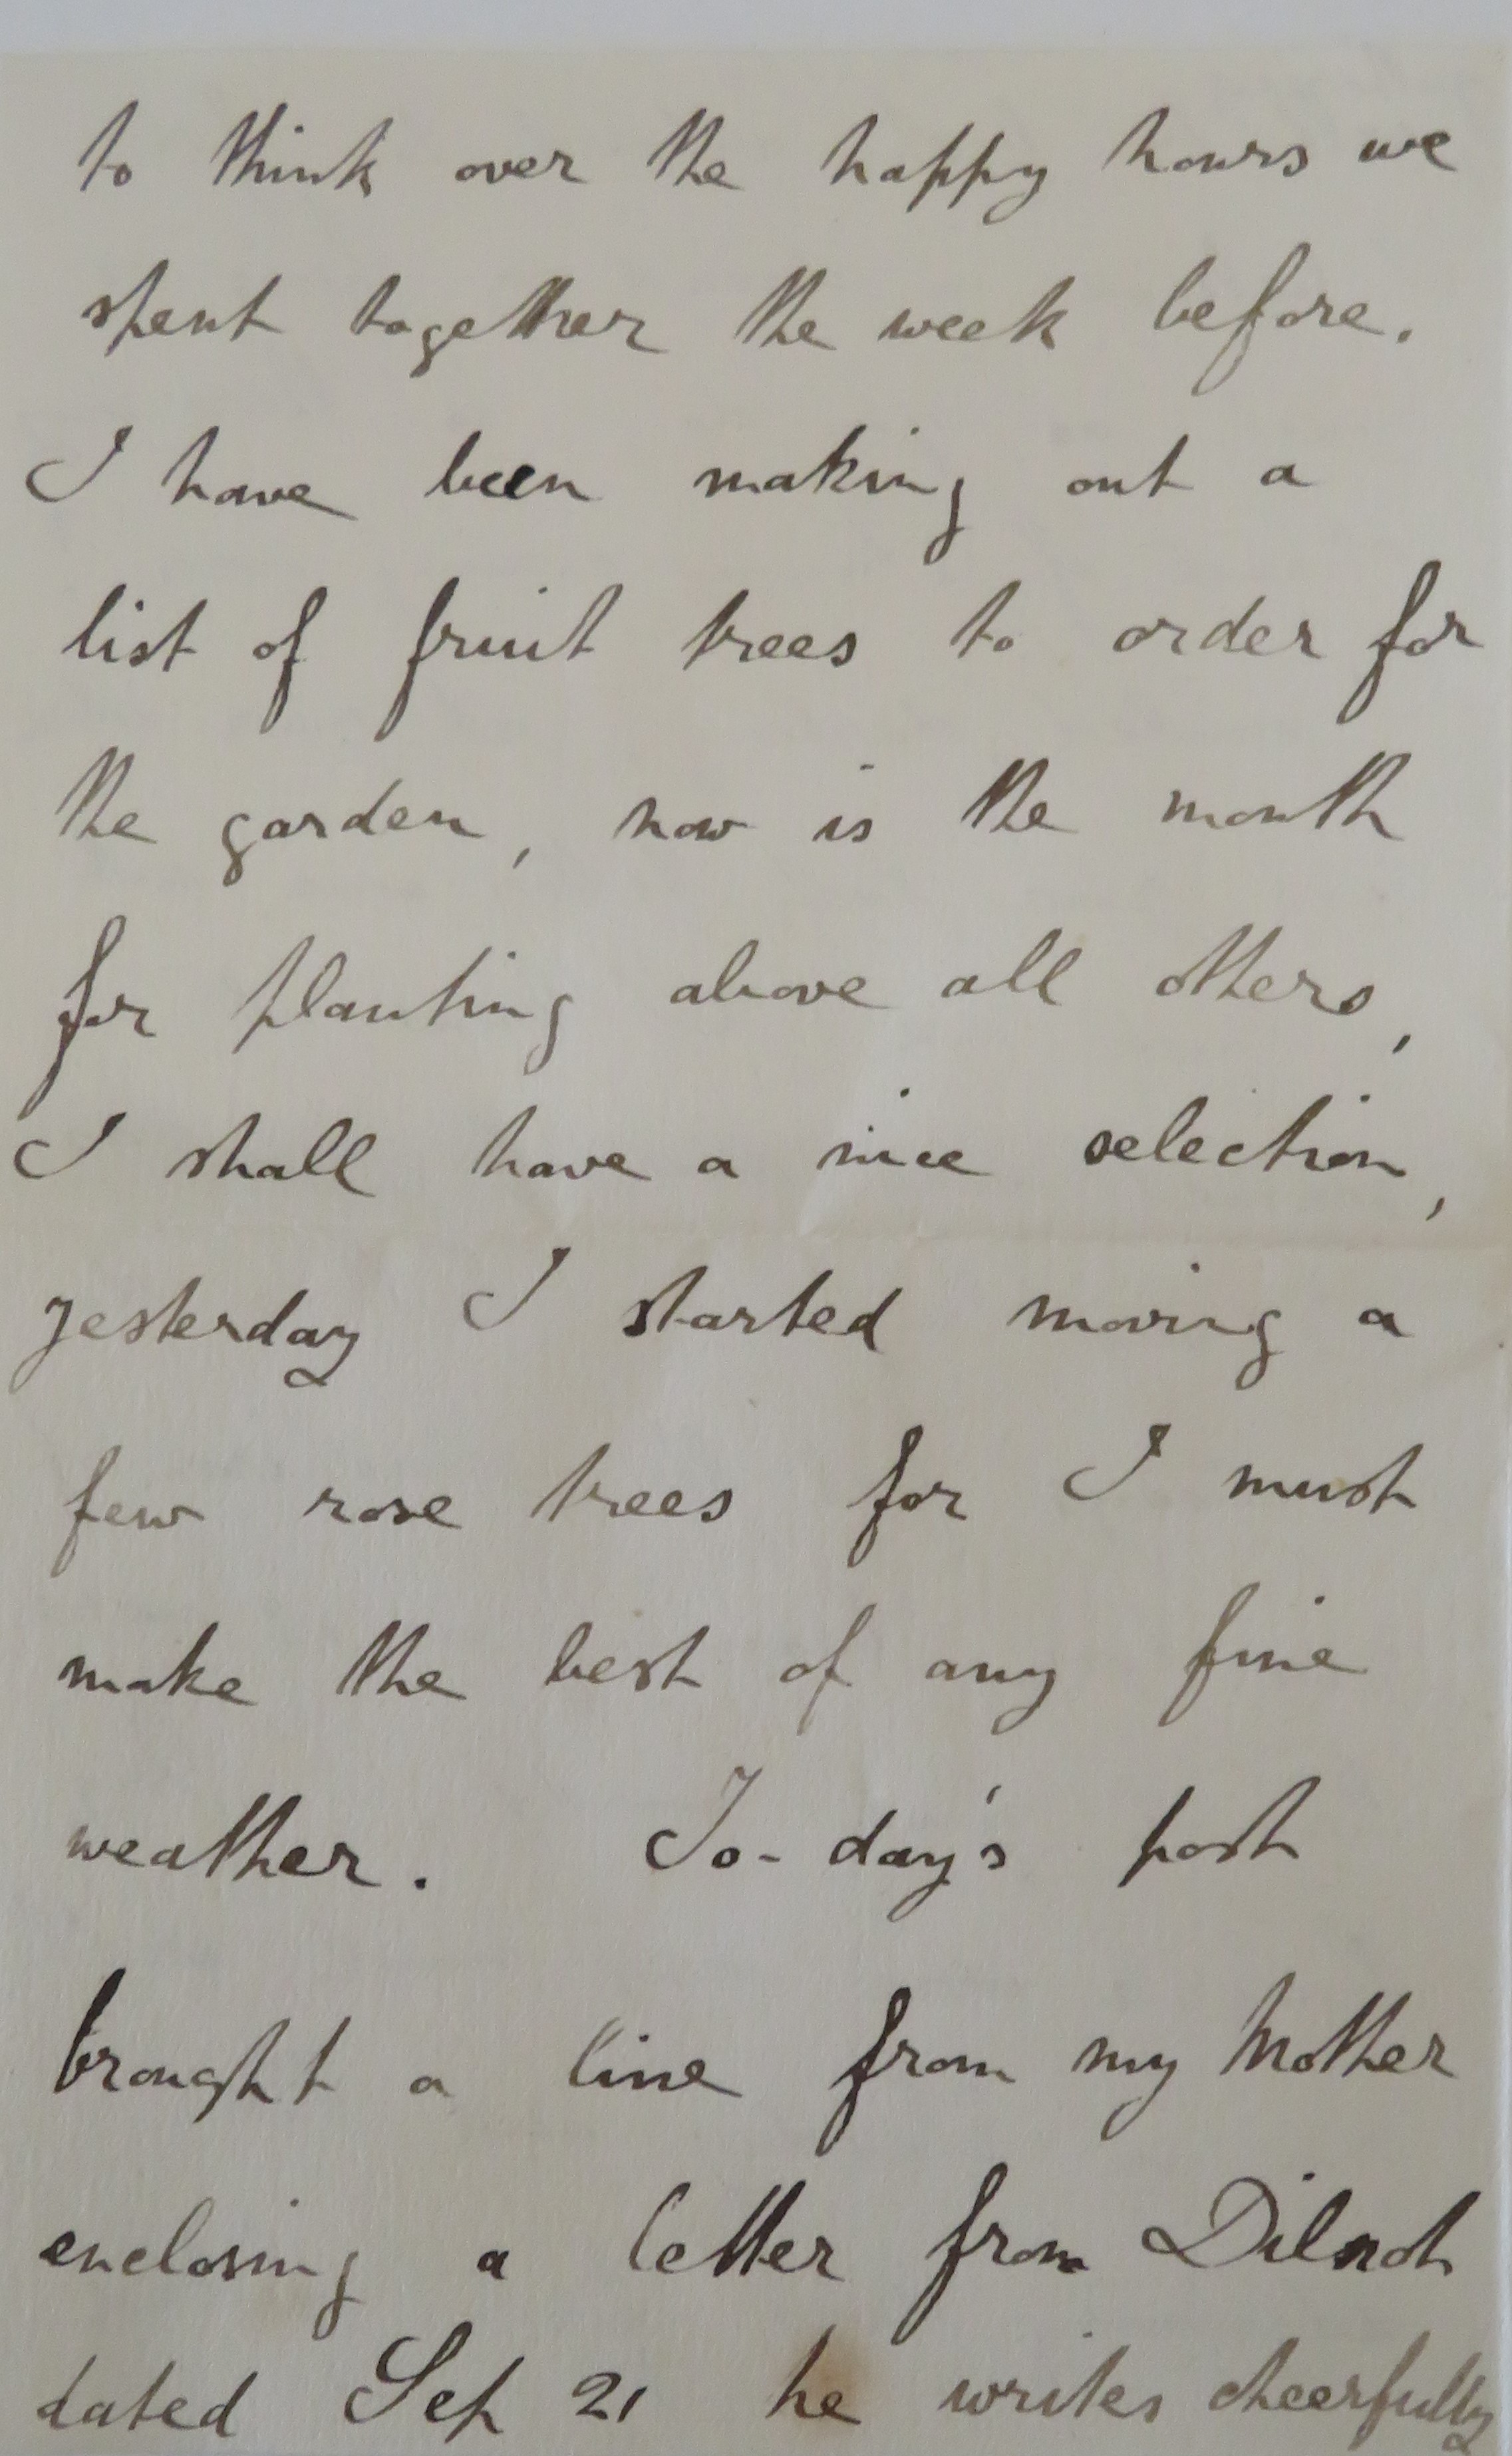 to think over the happy hours we
spent together the week before.
I have been making out a
list of fruit trees to order for
the garden, now is the month
for planting above all others,
I shall have a nice selection,
yesterday I started moving a
few rose trees for I must
make the best of any fine
weather. To-day's post
brought a line from my Mother
enclosing a letter from Dilnot
dated Sep 21 he writes cheerfully